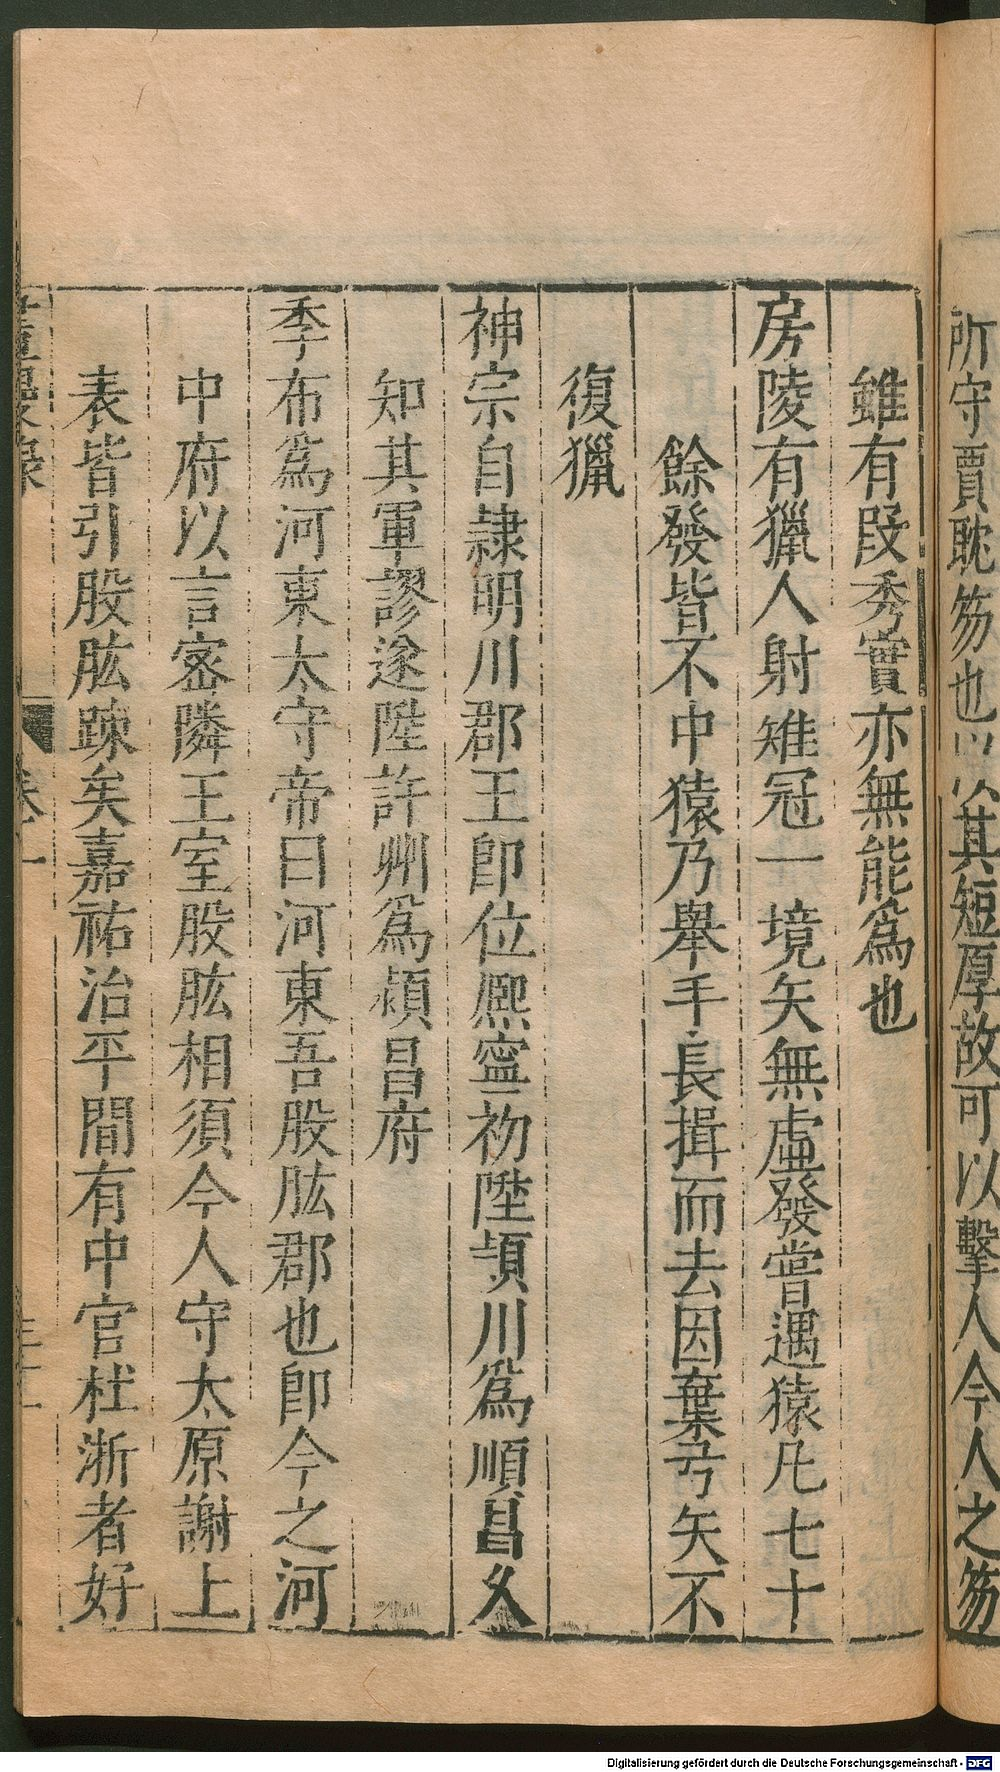 所守賈耽笏也 以其短厚故可以擊人今人之笏
雖有段秀實亦無能爲也
房陵有獵人射雉冠一境矢無虛發嘗遇猿凡七十
餘發皆不中猿乃舉手長揖而去因棄弓矢不
復獵
神宗自隷明川郡王卽位熈寧初陞頴川爲順昌久
知其軍謬遂陞許州爲潁昌府
季布爲河東太守帝曰河東吾股肱郡也卽今之河
中府以言密隣王室股肱相須今人守太原謝上
表皆引股肱踈矣嘉祐治平間有中官杜浙者好
卷一
Digitalisierung gefördert durch die Deutsche Forschungsgemeinschaft - DFG